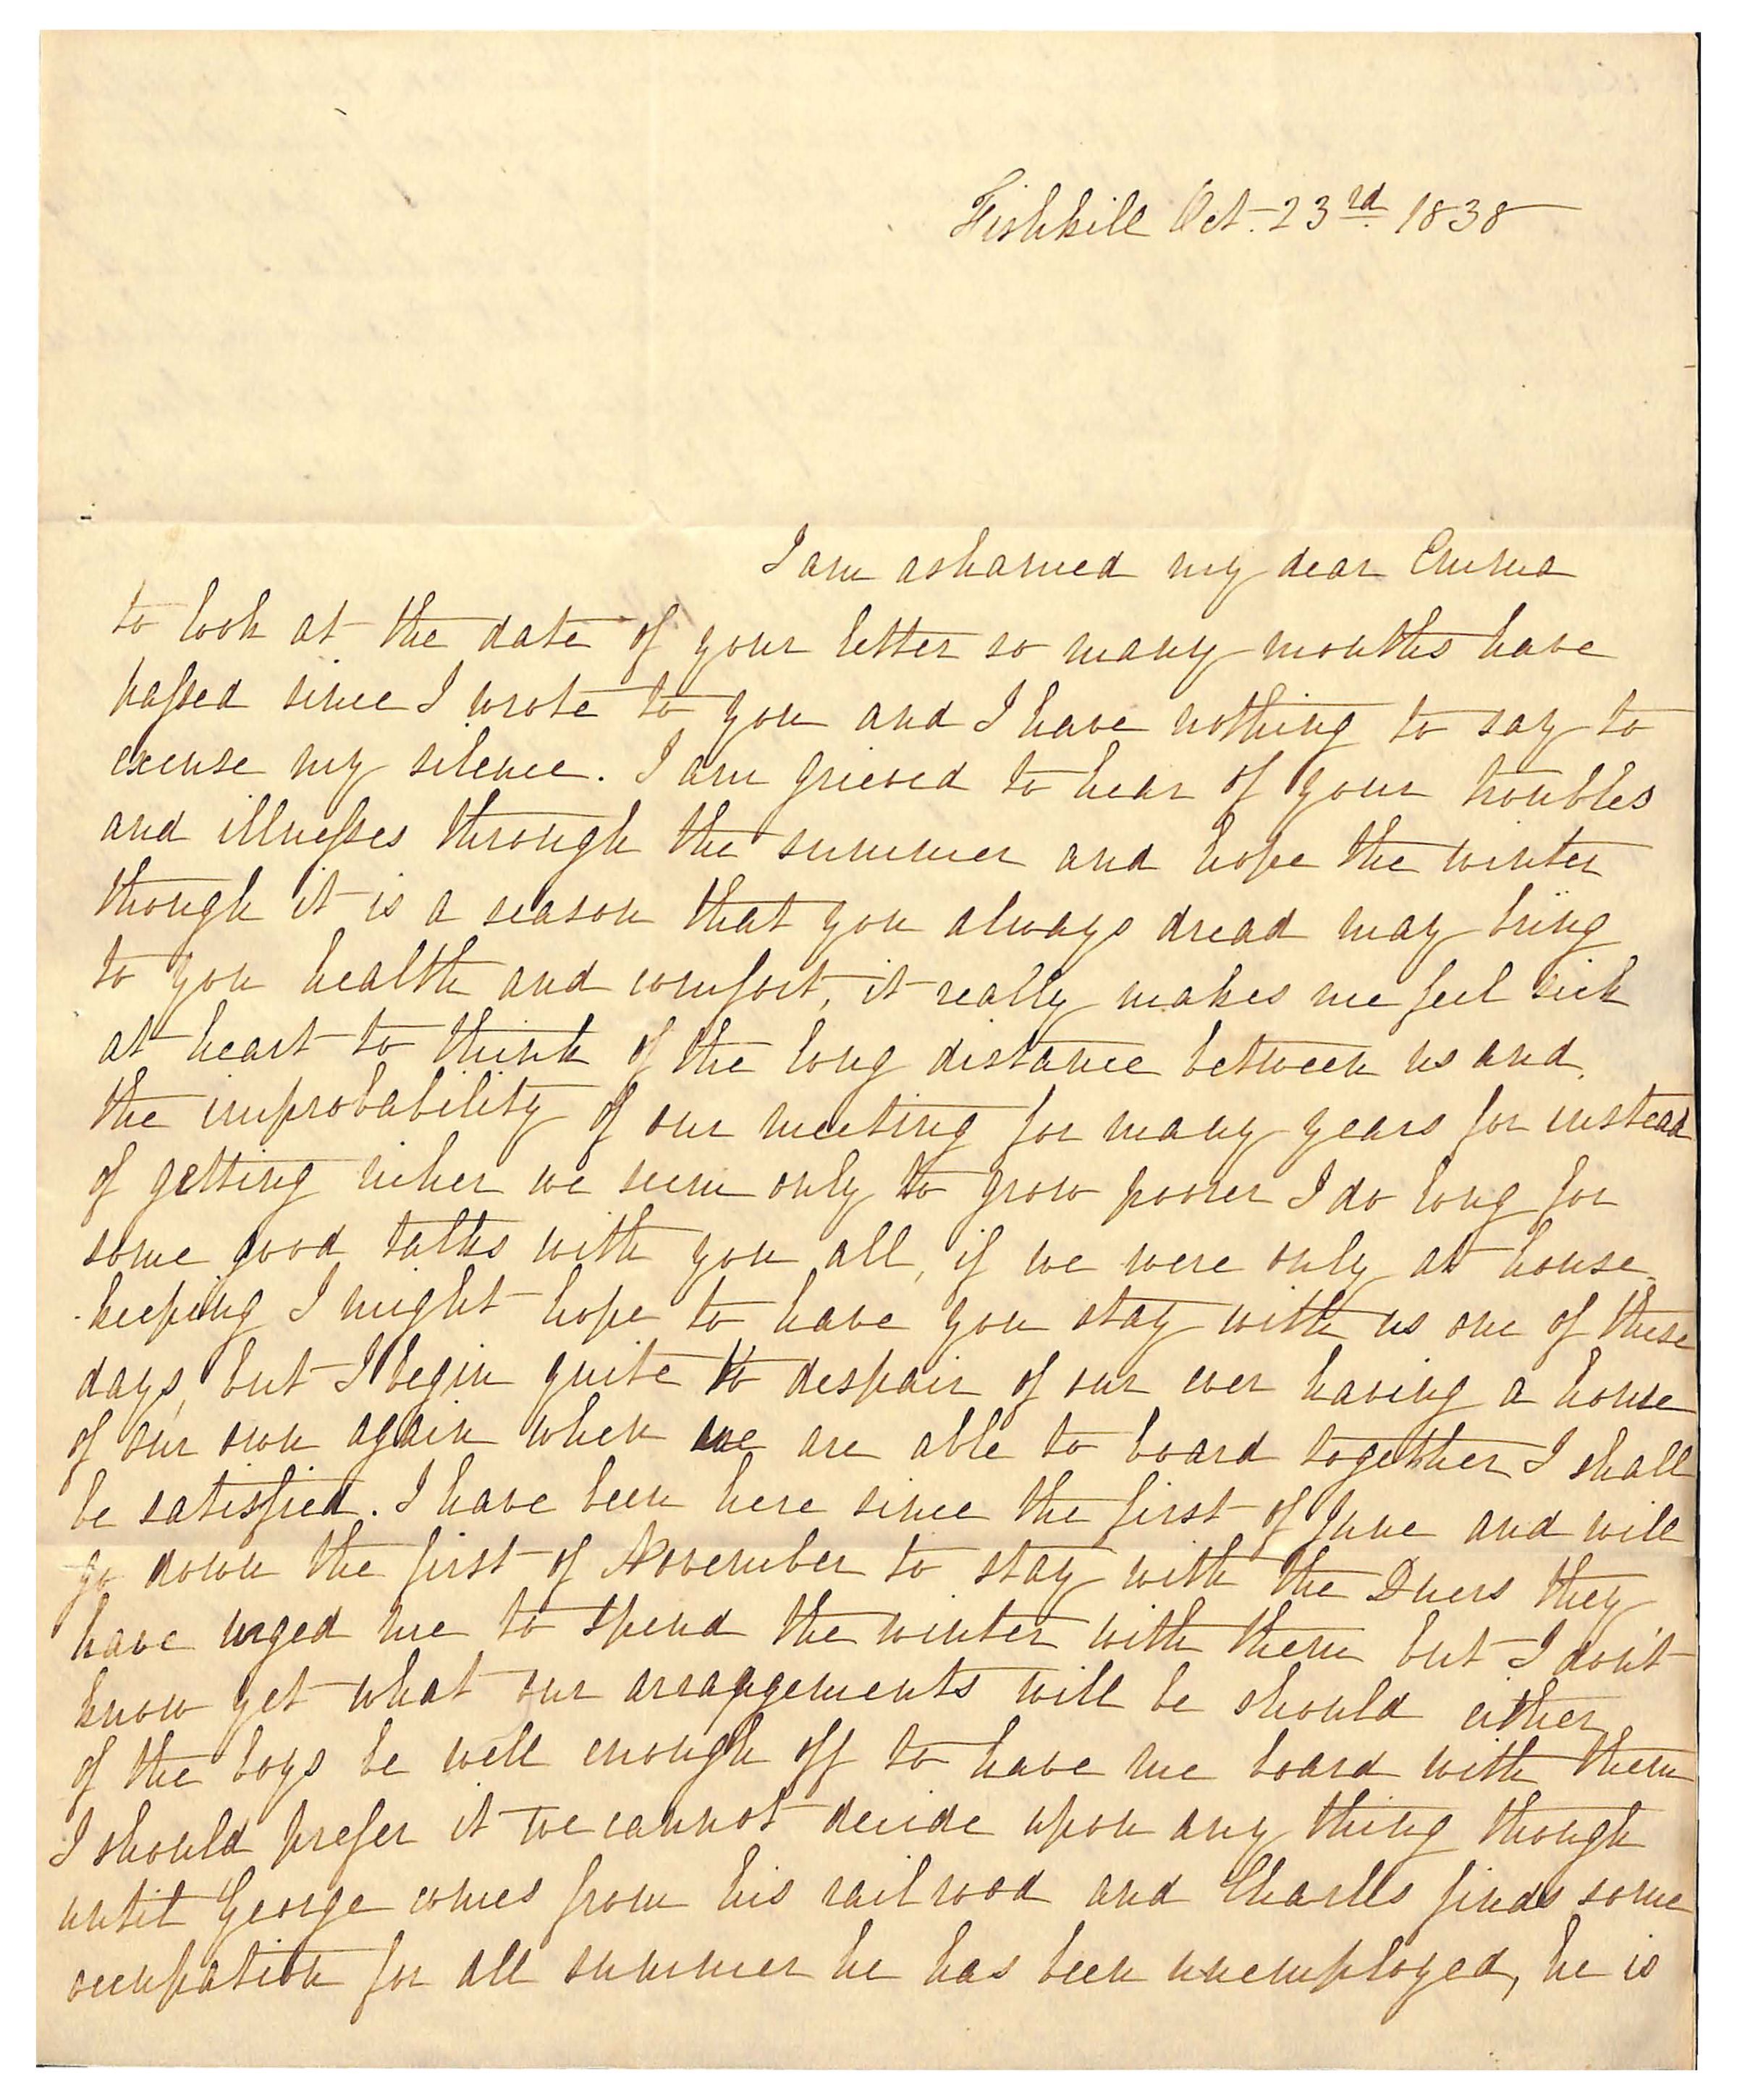 Fishkill Oct. 23rd 1838
I am ashamed my dear Emma
to look at the date of your letter so many months have
passed since I wrote to you and I have nothing to say to
excuse my silence. I am grieved to hear of your troubles
and illnesses through the summer and hope the winter
though it is a season that you always dread may bring
to you health and comfort, it really makes me feel sick
at heart to think of the long distance between us and
the improbability of our meeting for many years for instead
of getting richer we seem only to grow poorer I do long for
some good talks with you all, if we were only at house-
keeping I might hope to have you stay with us one of these
days, but I begin quite to despair of our ever having a house
of our own again when we are able to board together I shall
be satisfied. I have been here since the first of June and will
go down the first of November to stay with the Duers they
have urged me to spend the winter with them but I don't
know yet what our arrangements will be should either
of the boys be well enough off to have me board with them
I should prefer it we cannot decide upon any thing though
until George comes from his rail road and Charles finds some
occupation for all summer he has been unemployed, he is